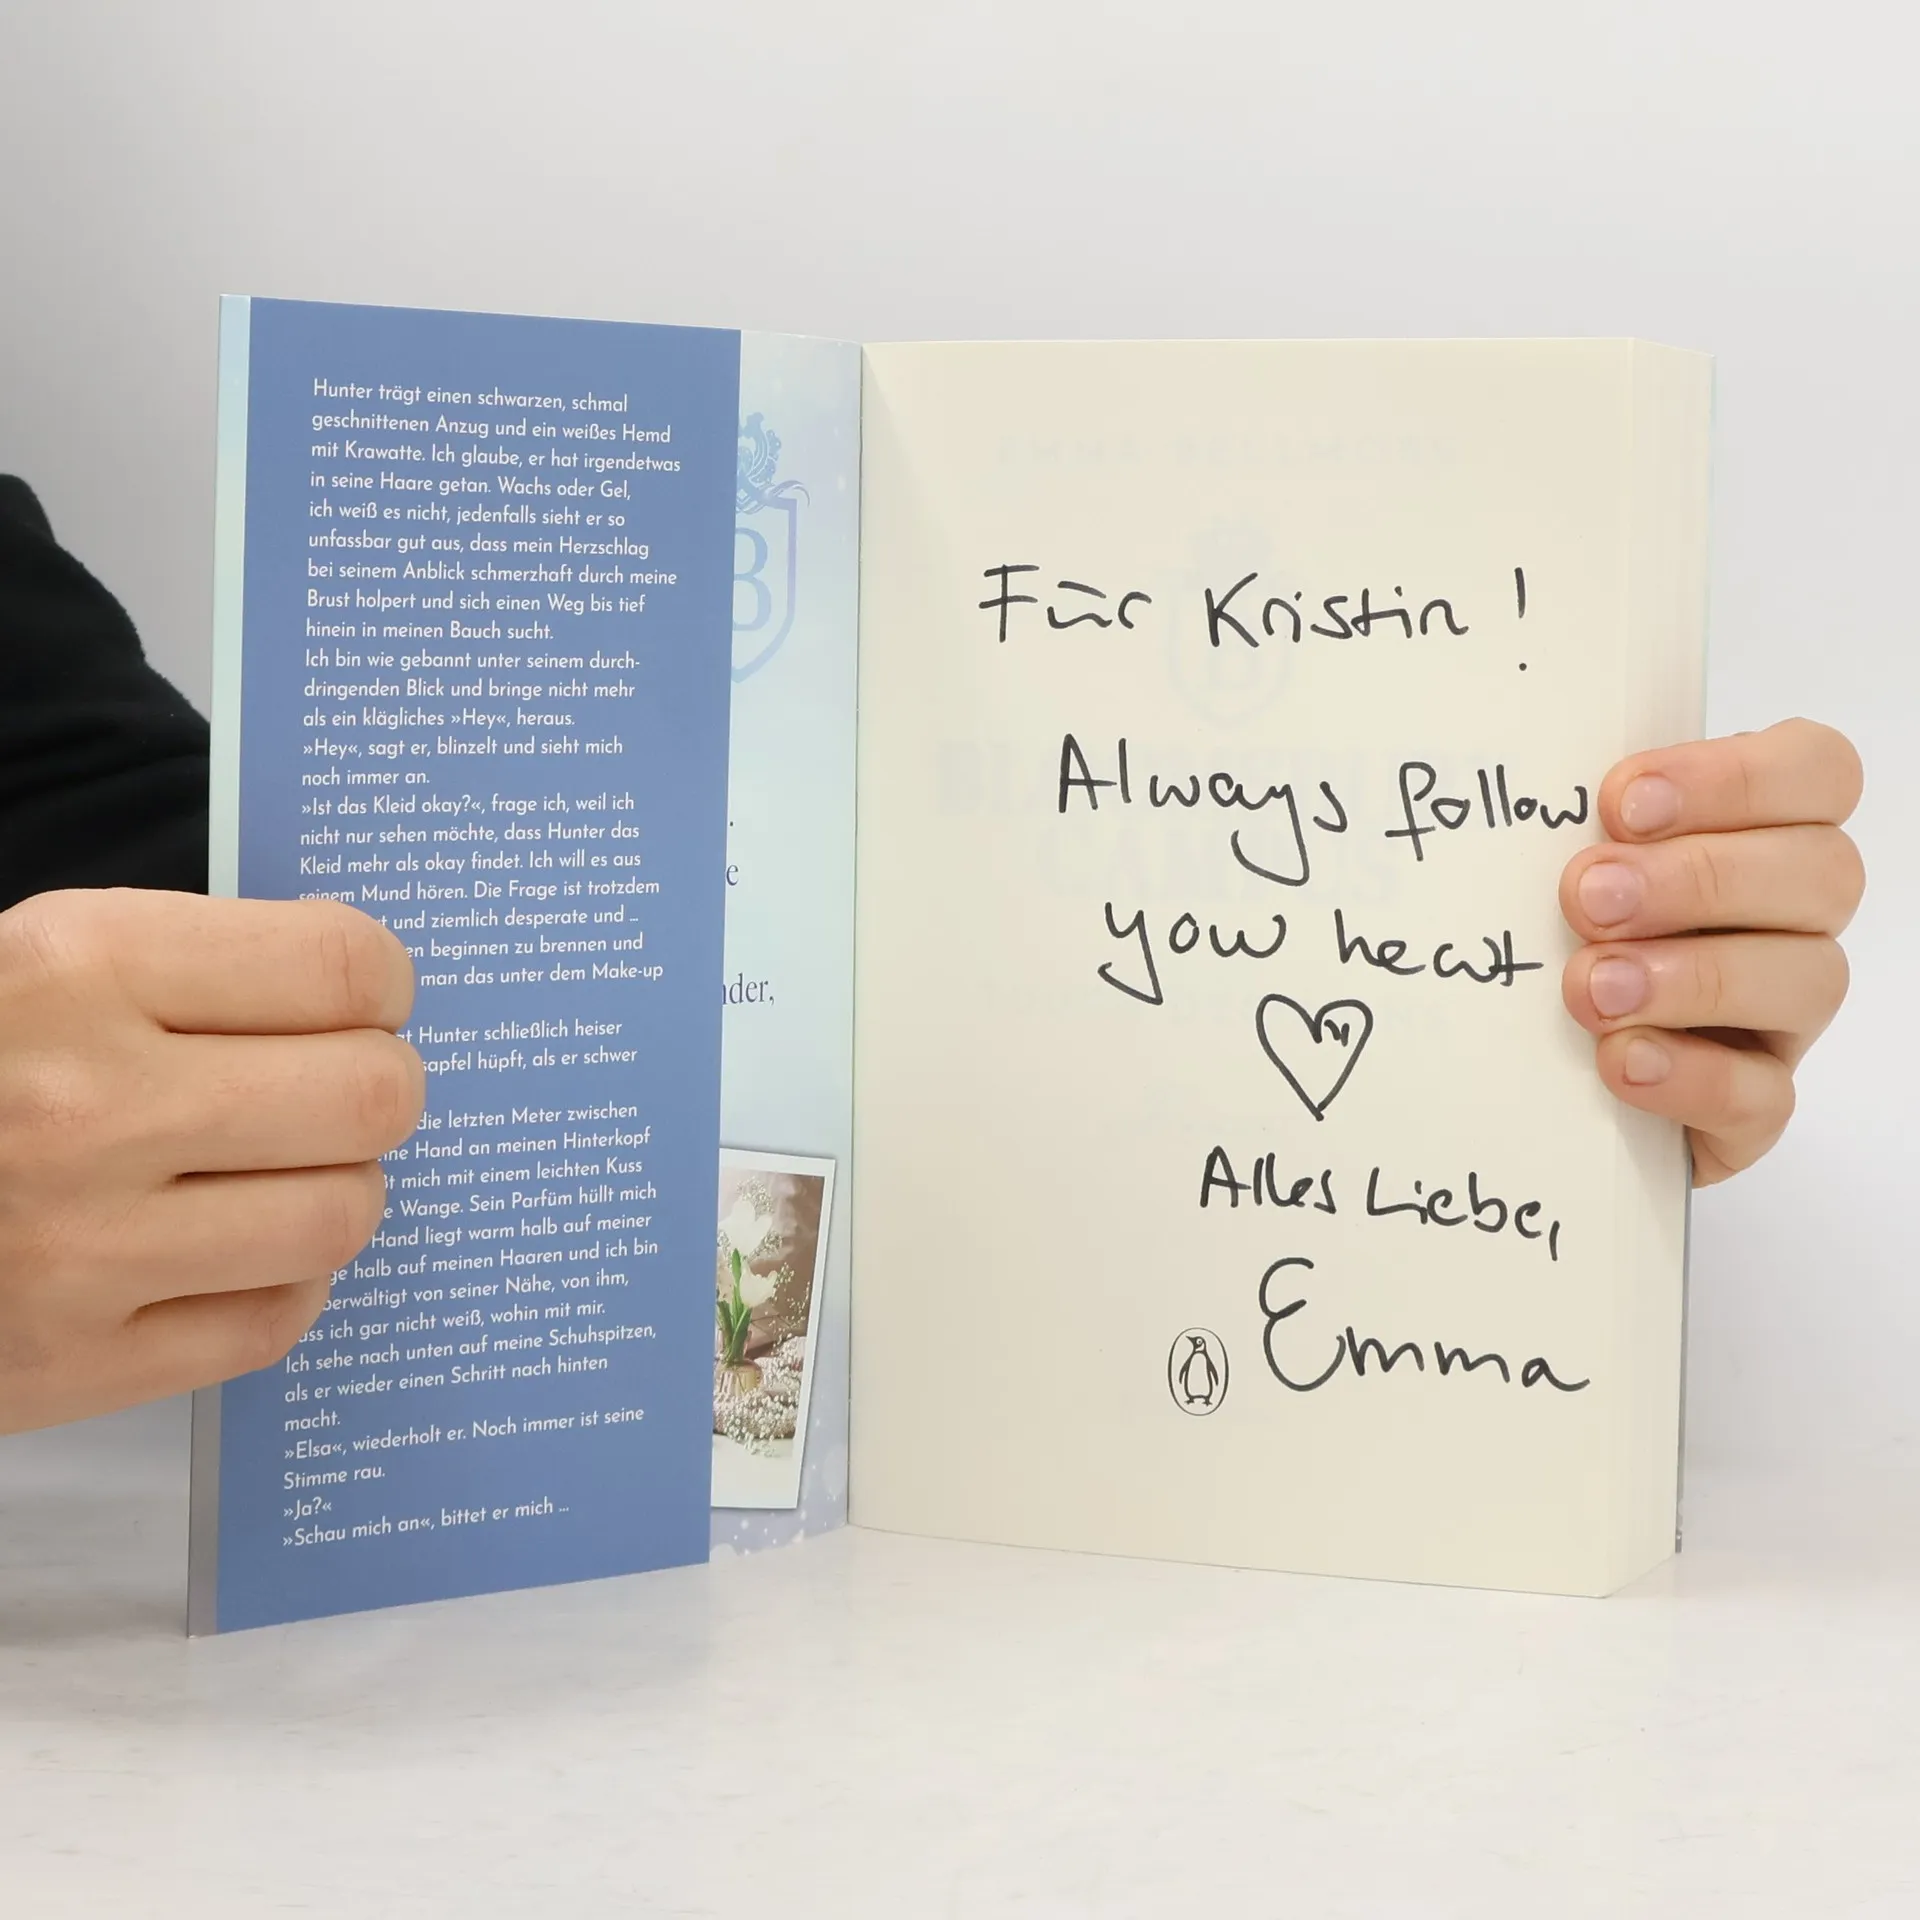 Hunter trägt einen schwarzen, schmal
geschnittenen Anzug und ein weißes Hemd
mit Krawatte. Ich glaube, er hat irgendetwas
in seine Haare getan. Wachs oder Gel,
ich weiß es nicht, jedenfalls sieht er so
unfassbar gut aus, dass mein Herzschlag
bei seinem Anblick schmerzhaft durch meine
Brust holpert und sich einen Weg bis tief
hinein in meinen Bauch sucht.
Ich bin wie gebannt unter seinem durch-
dringenden Blick und bringe nicht mehr
als ein klägliches »Hey«, heraus.
»Hey«, sagt er, blinzelt und sieht mich
noch immer an.
»Ist das Kleid okay?«, frage ich, weil ich
nicht nur sehen möchte, dass Hunter das
Kleid mehr als okay findet. Ich will es aus
seinem Mund hören. Die Frage ist trotzdem
und ziemlich desperate und ...
beginnen zu brennen und
man das unter dem Make-up
Hunter schließlich heiser
sapfel hüpft, als er schwer
die letzten Meter zwischen
Hand an meinen Hinterkopf
mich mit einem leichten Kuss
Wange. Sein Parfüm hüllt mich
Hand liegt warm halb auf meiner
halb auf meinen Haaren und ich bin
berwältigt von seiner Nähe, von ihm,
ass ich gar nicht weiß, wohin mit mir.
Ich sehe nach unten auf meine Schuhspitzen,
als er wieder einen Schritt nach hinten
macht.
»Elsa«, wiederholt er. Noch immer ist seine
Stimme rau.
»Ja?«
»Schau mich an«, bittet er mich ...
B
e
nder,
Für Kristin!
Always follow
your heart
Alles Liebe,
Emma